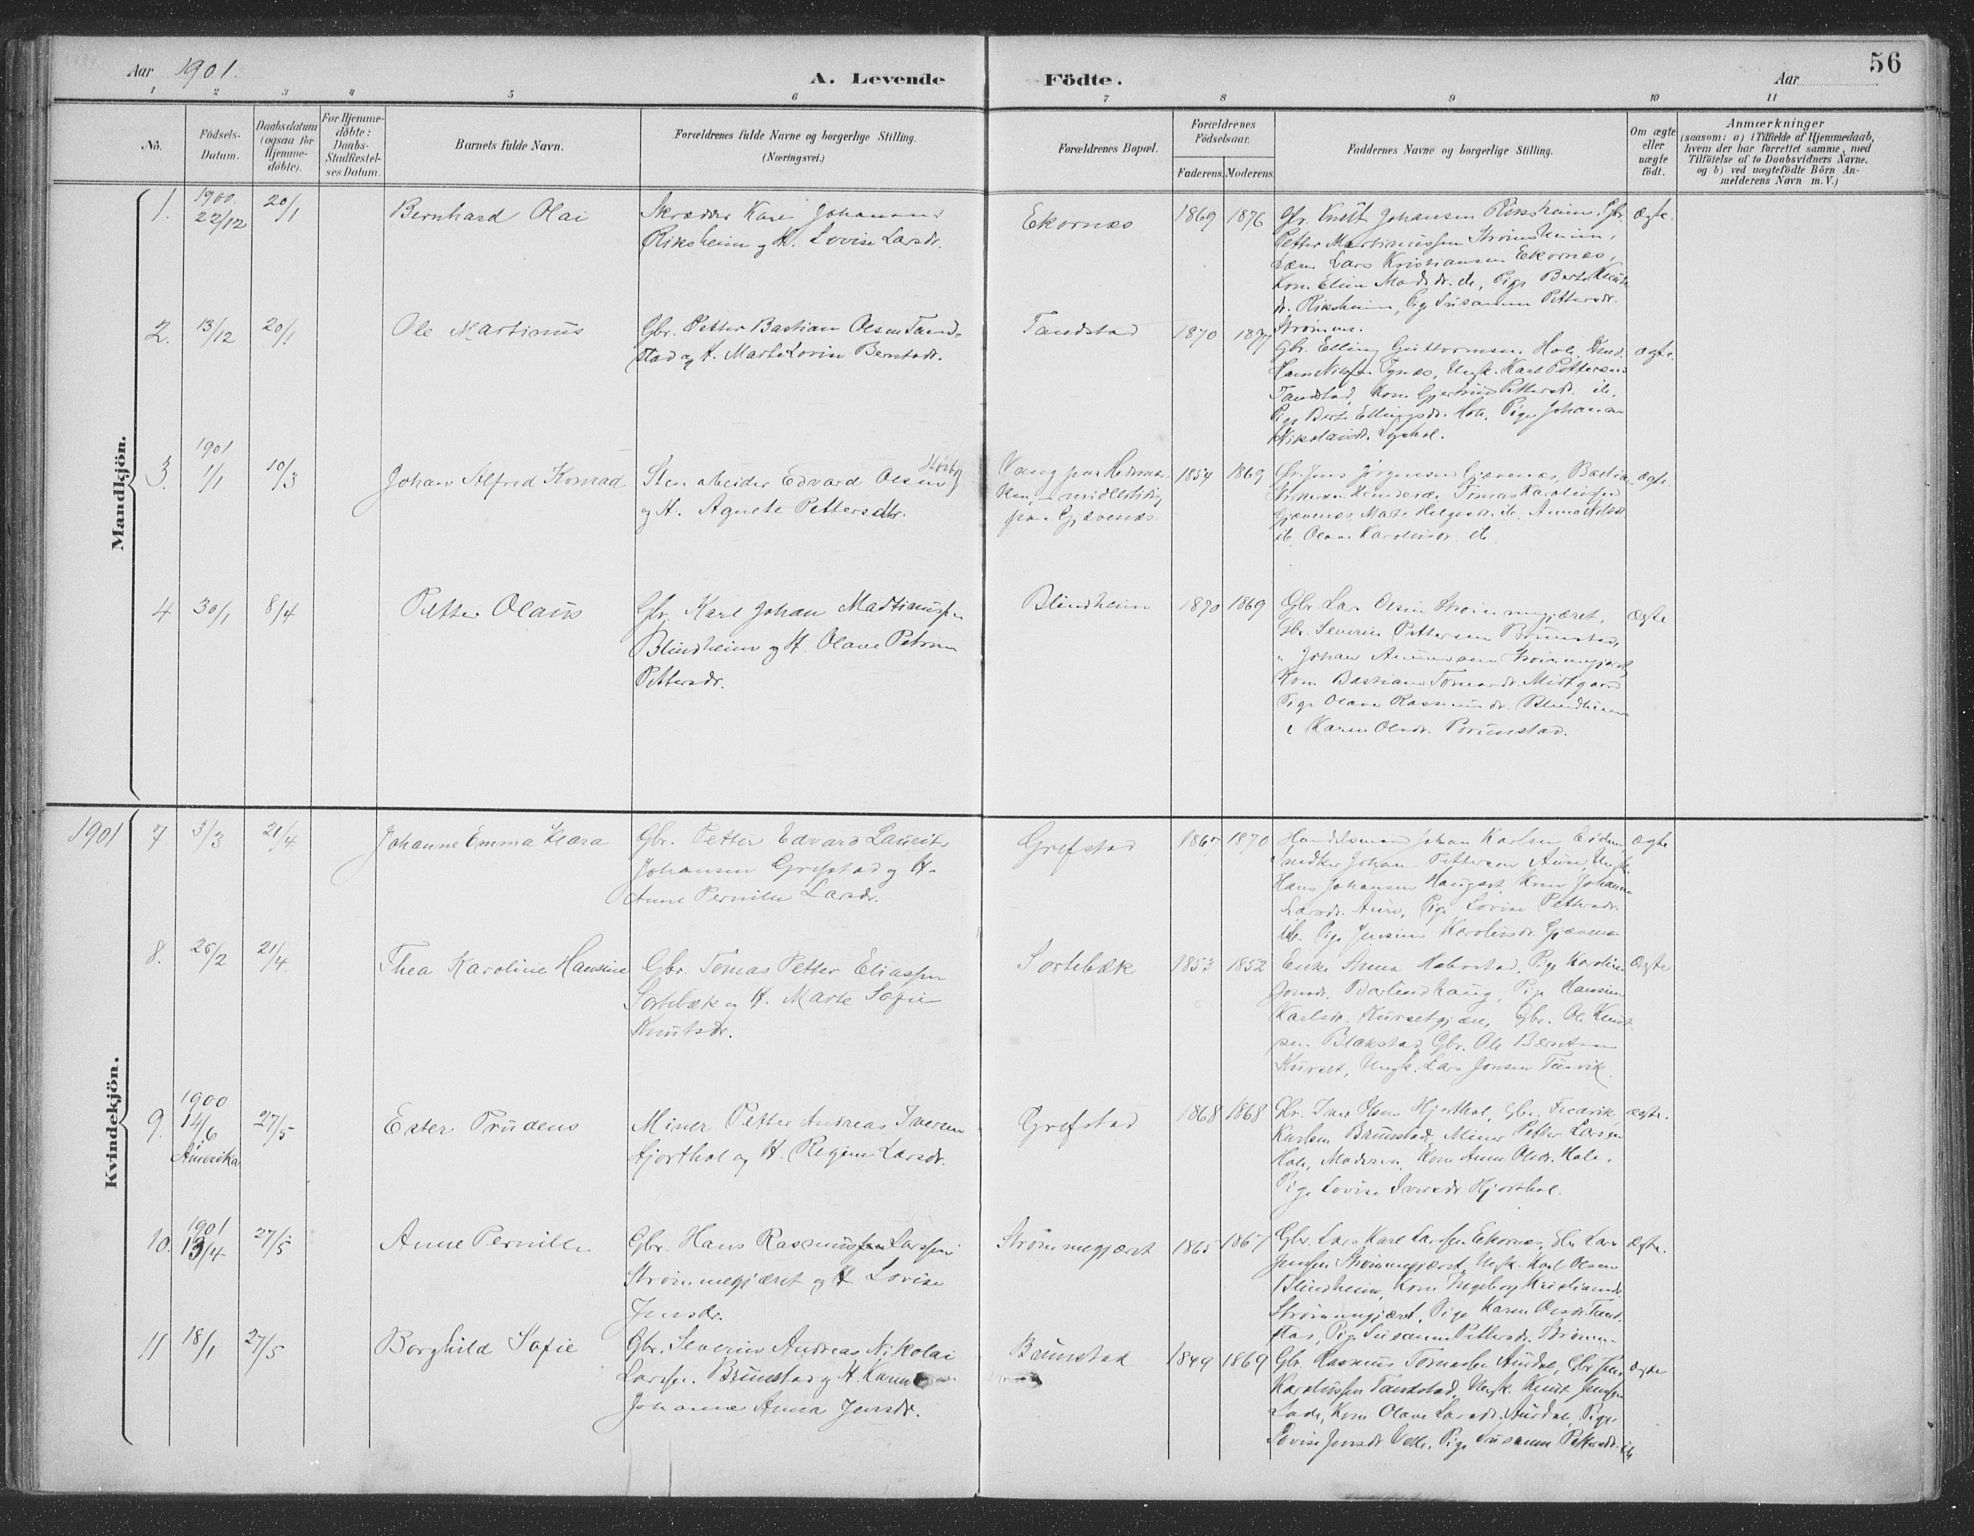 56
Aar 1901.
A. Levende Födte.
Aar
1 2 3 4 5 6 7 8 9 10 11
No.
Födsels-Datum.
Daabsdatum (ogsaa for Hjemmedöbte).
For Hjemmedöbte: Daabs-Stadfæstelses Datum.
Barnets fulde Navn.
Forældrenes fulde Navne og borgerlige Stilling.
(Næringsvei.)
Forældrenes Bopæl.
Forældrenes Födselsaar.
Faderens. Moderens.
Faddernes Navne og borgerlige Stilling.
Om ægte eller uægte födt.
Anmærkninger
(saasom: a) i Tilfælde af Hjemmedaab, hvem der har forrettet samme, med Tilföielse af to Daabsvidners Navne. og b) ved uægtefödte Börn Anmelderens Navn m. V.)
Mandkjön.
1. 1900 22/12 20/1 Bernhard Olai
Skrædder Kare Johannes
Riksheim og H. Lovise Larsdr.
Ekornæs 1869 1876
Gbr. Knut Johansen Riksheim, Gbr.
Petter Martinussen Strømsheim,
Lars Kristiansen Ekornæs,
Kone Elen Madsdr. ib, Pige Berte Knuts
dr. Riksheim, Pig Susanne Pettersdr.
Strømme.
ægte.
2. 13/12 20/1 Ole Martinus
Gbr. Petter Bastian Olsen Tand
stad og H. Marte Lovise Berntsdr.
Tandstad 1870 1877
Gbr. Elling Guttormsen Hole,
Ungk. Karl Pettersen
Tandstad, Kone Gjertrud Pettersdr. ib,
Pige Berte Ellingsdr. Hole, Pige Johanne
Nikolaidr.
ægte.
3. 1901 1/1 10/3 Johan Alfred Konrad
Stenarbeider Edvard Olsen
og H. Agnete Pettersdtr.
Vang paa Hedema
ken, midlertidig
paa Gjævenæs
1854 1869
Jens Jørgensen Gjævenæs, Bastian
Tomas Karolussen
Gjævenæs, Marte Helgesdr. ib, Anna
ib Olave Karolusdr. ib
ægte.
4 30/1 8/4 Petter Olaus
Gbr. Karl Johan Mathiassen
Blindheim og H. Olave Petrine
Pettersdr.
Blindheim 1870 1869
Gbr. Lars Olsen Strømmegjæret,
Gbr. Severin Pettersen Brunstad,
" Johan Amundsen Strømmegjæret
Kone Bastiane Tomasdr. Midtgaard
Pige Olave Rasmusdr. Blindheim
" Karen Olsdr. Brunstad.
ægte
Kvindekjön.
1901 7. 3/3 21/4 Johanne Emma Klara
Gbr. Petter Edvard Laurits
Johansen Grefstad og H.
Anne Pernille Larsdr.
Grefstad 1865 1870
Handelsmand Johan Karlsen Eidem
Snedker Johan Pettersen Aure, Ungk.
Hans Johansen Haugset, Kone Johanne
Larsdr. Aure, Pige Lovise Pettersdr.
ib. Pige Jensine Karolusdr. Gjævenæs
ægte
8. 26/2 21/4 Thea Karoline Hansine
Gbr. Tomas Petter Eliassen
Sortebæk og H. Marte Sofie
Knutsdr.
Sortebæk 1853 1852
Enke Anna Habostad, Pige Karoline
Jonsdr. Barlindhaug, Pige Hansine
Karlsdr. Kursetgjære, Gbr. Ole Knut
sen Blakstad, Gbr. Ole Berntsen
Kurset, Ungk. Lars Jonsen Tusvik.
ægte
9. 1900 14/6 Amerika 27/5 Ester Prudens
Miner Petter Andreas Iversen
Hjorthol og H. Regine Larsdr.
Grefstad 1868 1868
Gbr. Iver Olsen Hjorthol, Gbr. Fredrik
Karlsen Brunstad, Miner Petter Larsen
Hole, Moderen, Kone Anne Olsdr. Hole,
Pige Lovise Iversdr. Hjorthol.
ægte.
10. 1901 13/4 27/5 Anne Pernille
Gbr. Hans Rasmussen Larssen
Strømmegjæret og H Lovise
Jensdr.
Strømmegjæret 1865 1867
Gbr. Lars Karl Larsen Ekornæs, Gbr Lars
Jenssen Strømmegjæret, Ungk. Karl Olsen
Blindheim, Kone Ingeborg Kristiansdr.
Strømmegjæret, Pige Karen Olsdr. Tand
stad, Pige Susanne Pettersdr. Strømme
ægte.
11 18/1 27/5 Borghild Sofie
Gbr. Severin Andreas Nikolai
Larssen Brunstad og H. Karen
Johanne Anna Jensdr.
Brunstad 1849 1869
Gbr. Rasmus Tomassen Aurdal, Gbr Jens
Karolussen Tandstad, Ungk. Knut Jenssen
Lade, Kone Olave Larsdr. Aurdal, Pige
Lovise Jensdr Velle, Pige Susanne Pettersdr ib
ægte